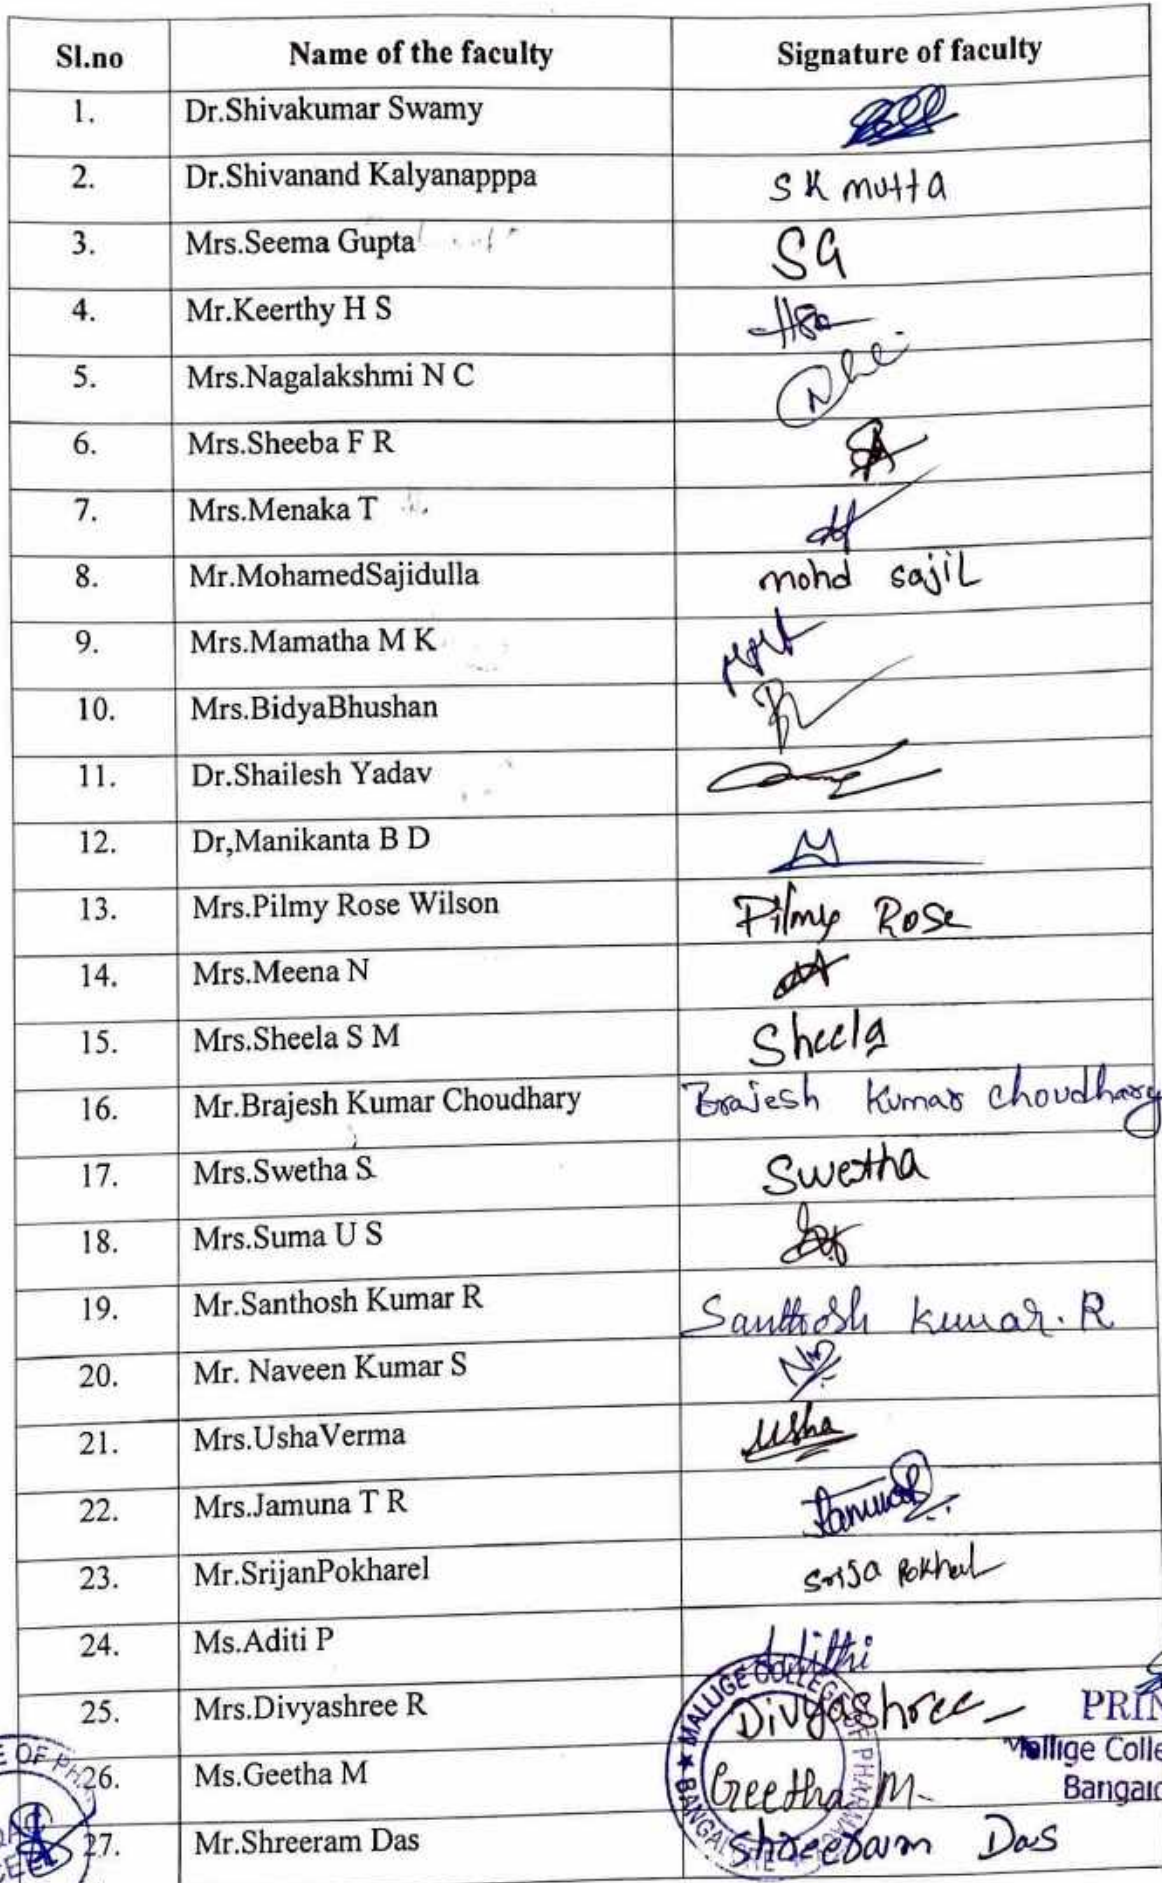 Sl.no Name of the faculty Signature of faculty
1. Dr.Shivakumar Swamy
2. Dr.Shivanand Kalyanapppa S K mutta
3. Mrs.Seema Gupta SG
4. Mr.Keerthy H S
5. Mrs.Nagalakshmi N C
6. Mrs.Sheeba F R
7. Mrs.Menaka T
8. Mr.MohamedSajidulla mohd sajiL
9. Mrs.Mamatha M K
10. Mrs.BidyaBhushan
11. Dr.Shailesh Yadav
12. Dr,Manikanta B D
13. Mrs.Pilmy Rose Wilson Pilmy Rose
14. Mrs.Meena N
15. Mrs.Sheela S M Sheela
16. Mr.Brajesh Kumar Choudhary Brajesh Kumar Choudhary
17. Mrs.Swetha S Swetha
18. Mrs.Suma U S
19. Mr.Santhosh Kumar R Santhosh Kumar. R
20. Mr. Naveen Kumar S
21. Mrs.UshaVerma Usha
22. Mrs.Jamuna T R
23. Mr.SrijanPokharel
24. Ms.Aditi P
25. Mrs.Divyashree R Divyashree PRIN
26. Ms.Geetha M Geetha M. Mallige Colle
Bangalo
27. Mr.Shreeram Das Shreeram Das
MALLIGE COLLEGE OF PHARMACY
BANGALORE
E OF PH